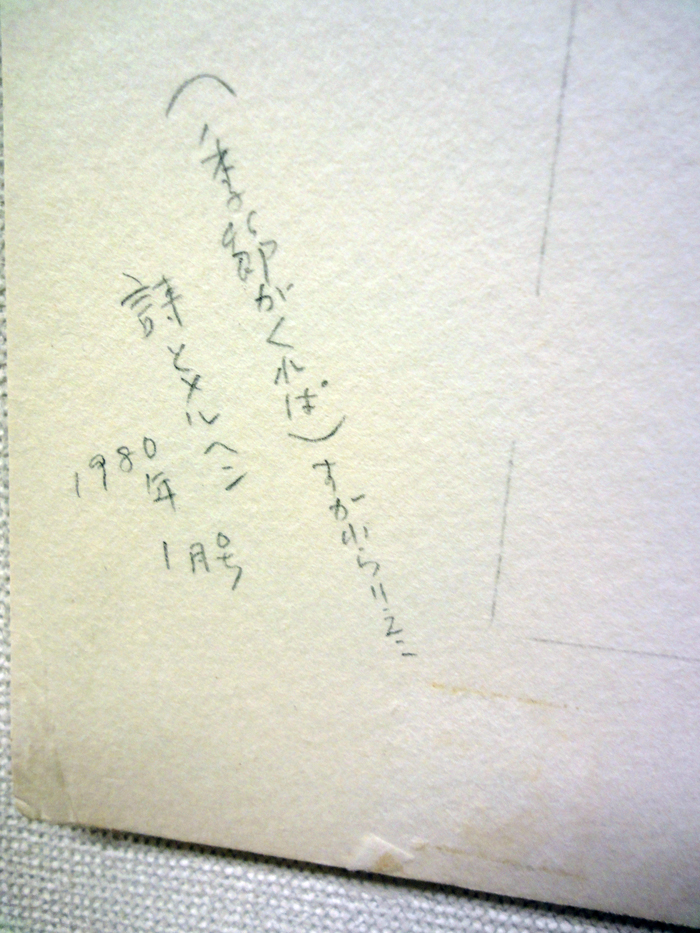 (季節がくれば)すがわらりえこ
詩とメルヘン
1980年
1月号